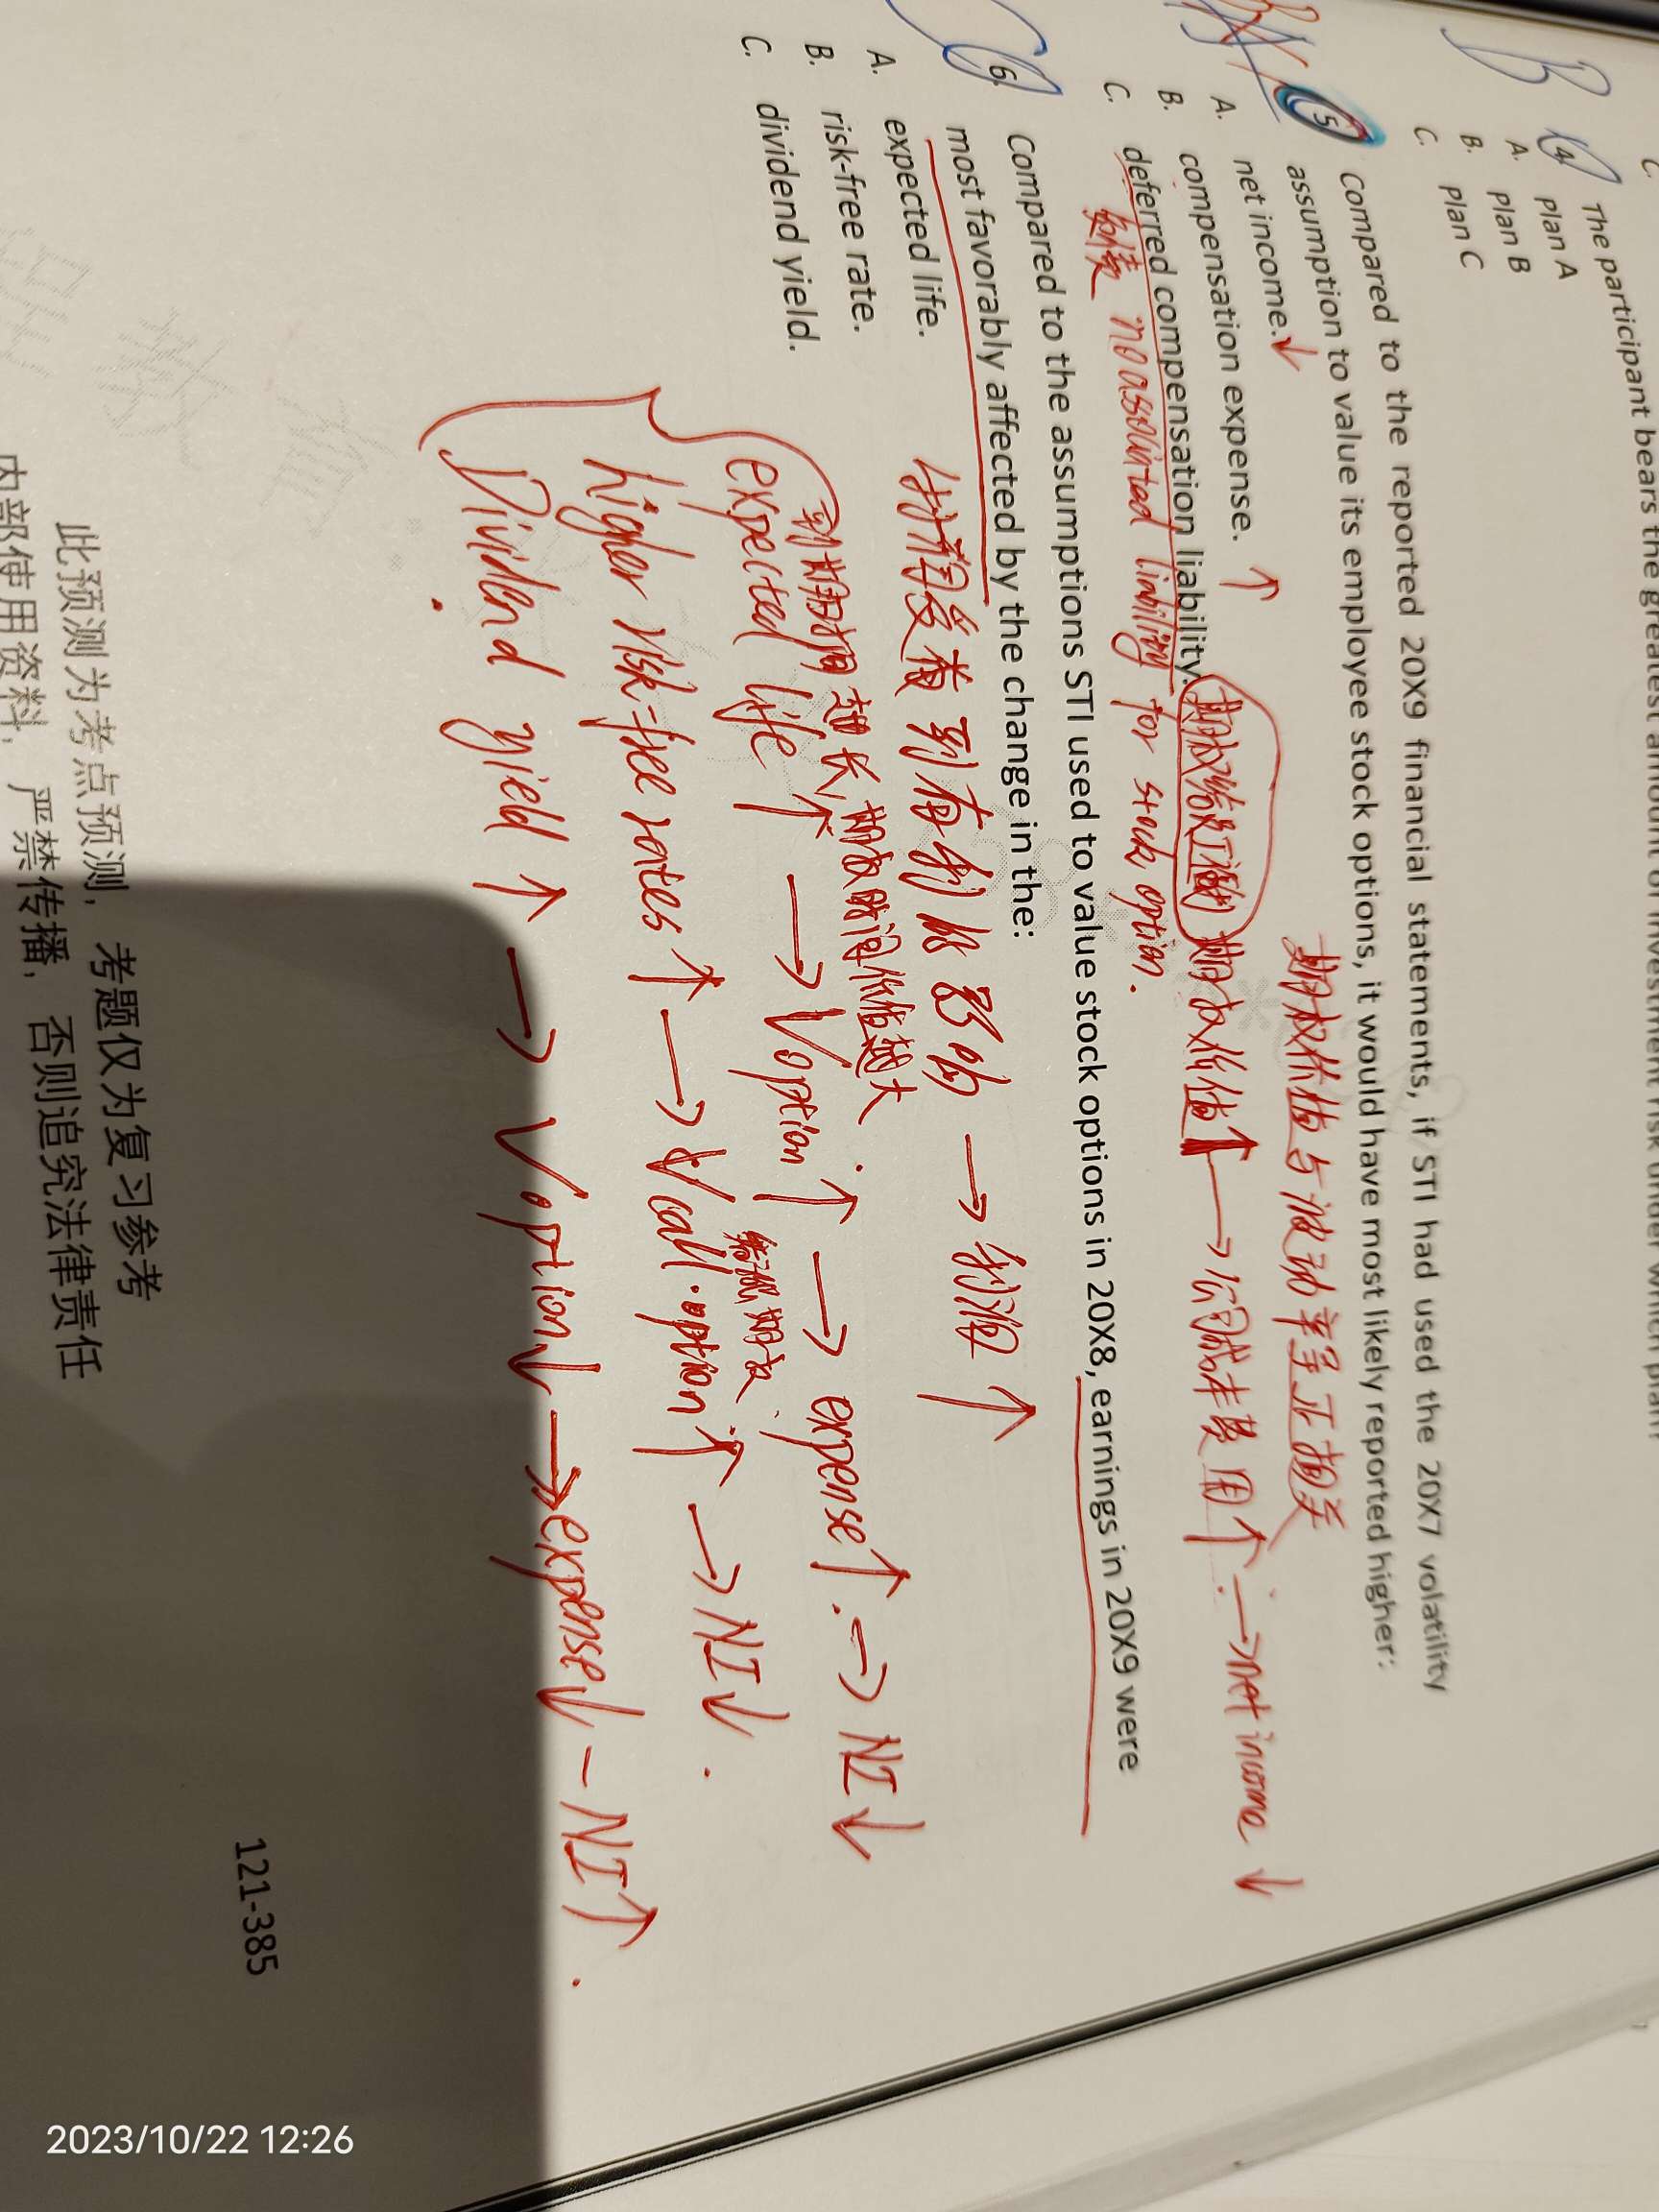 C.
The participant bears the greatest amount of investment risk under which plan?
B
4.
A. plan A
B. plan B
C. plan C
5.
Compared to the reported 20X9 financial statements, if STI had used the 20X7 volatility
assumption to value its employee stock options, it would have most likely reported higher:
期权价值与波动率呈正相关
A. net income. ↓
B. compensation expense. ↑
期权给员工的期权价值↑ → 公司成本费用↑ → net income ↓
C. deferred compensation liability.
负债 no associated liability for stock option.
6.
Compared to the assumptions STI used to value stock options in 20X8, earnings in 20X9 were
most favorably affected by the change in the:
受 到有利 影响 → 利润 ↑
A. expected life.
B. risk-free rate.
C. dividend yield.
到期期 越长, 期权时间价值越大
expected life ↑ → V option ↑ → expense ↑ → NI ↓
看涨期权
higher risk-free rates ↑ → V call option ↑ → NI ↓.
Dividend yield ↑ → V option ↓ → expense ↓ – NI ↑.
121-385
此预测为考点预测, 考题仅为复习参考
内部使用资料, 严禁传播, 否则追究法律责任
2023/10/22 12:26